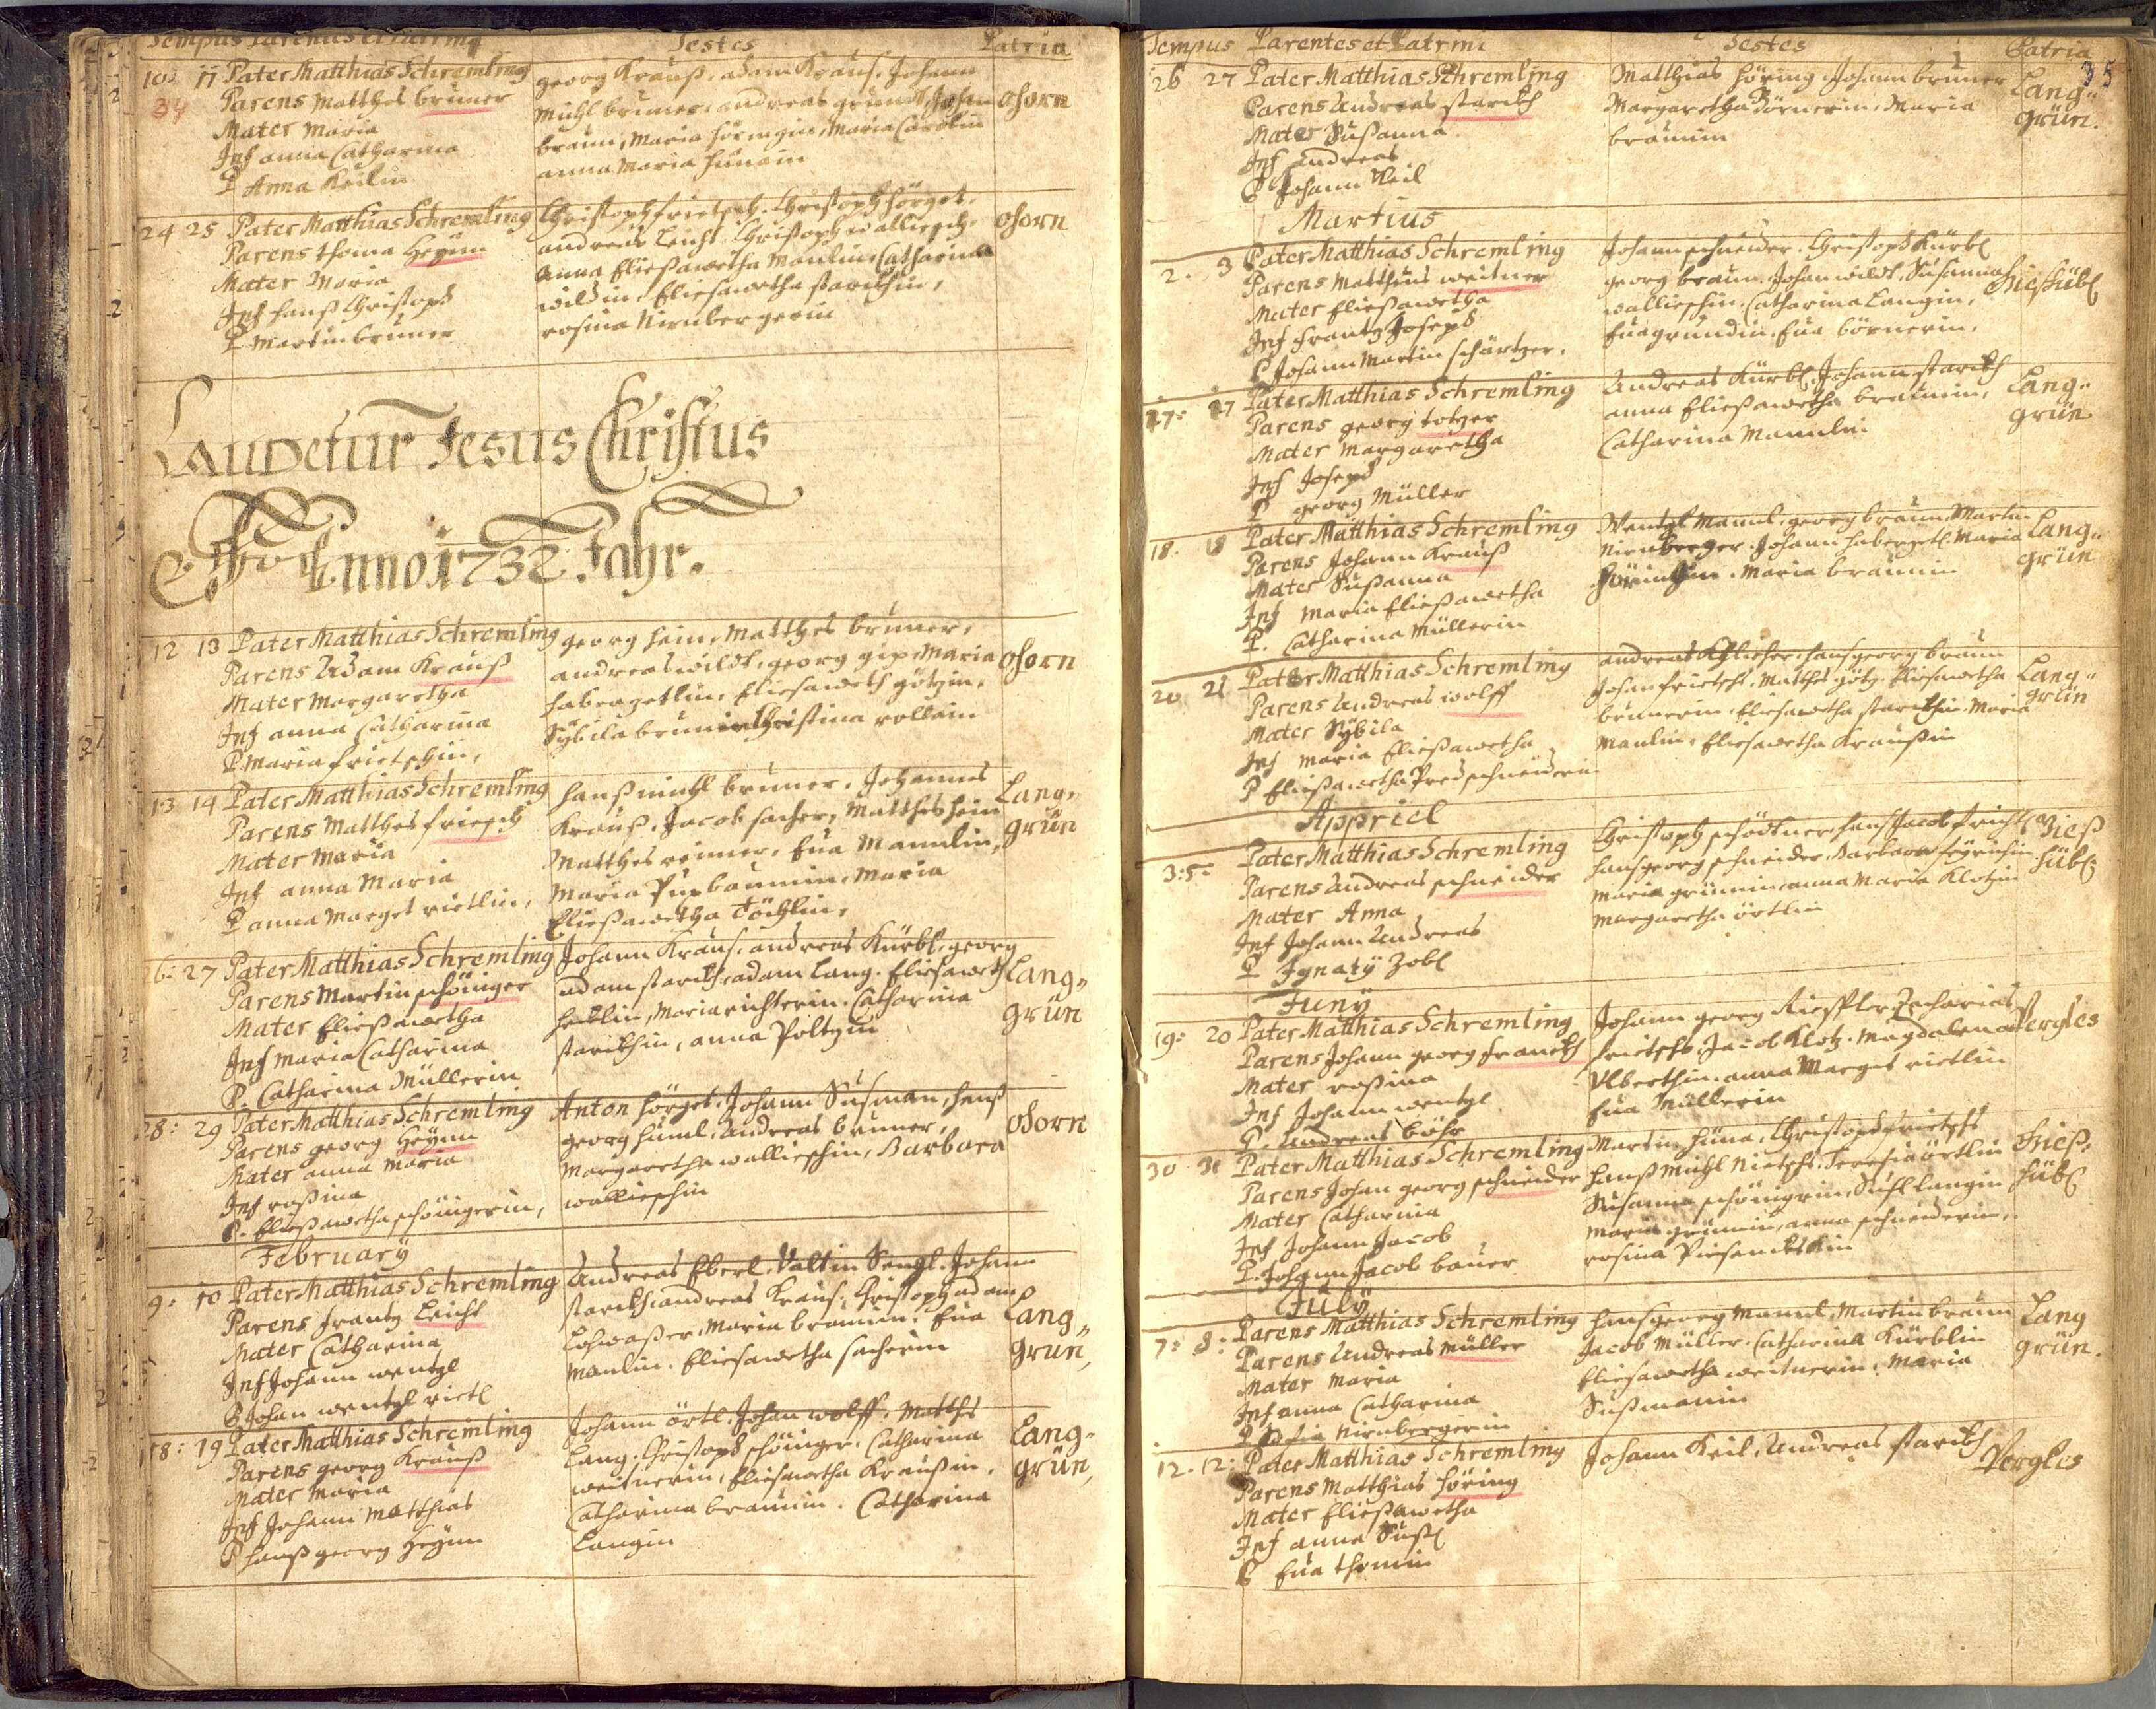 Tempus Parentes et Patrini Testes Patria
10: 11 Pater Matthias Schremling
34 Parens Matthes bruner
Mater Maria
Inf anna Catharina
P Anna Keilin
georg Krauß, adam Kraus. Johann
Michl bruner. andreas grundt, Johan
braun, Maria Höringin, Maria Carolin
anna Maria
ohorn
24 25 Pater Matthias Schremling
Parens thoma Heynn
Mater Maria
Inf Hanß Christoph
P Martin bruner
Christoph frietsch. Christoph Hörget.
andreas Leicht, Christoph wallisch.
Anna Eliesawetha Manlin, Catharina
wildin, Eliesawetha starckin,
rosina Nirnbergerin
ohorn
Laudetur Jesus Christus
Anno 1732 Jahr.
12 13 Pater Matthias Schremling
Parens Adam Krauß
Mater Margaretha
Inf anna Catharina
P Maria frietschin,
georg Hein, Matthes bruner,
andreas wildt, georg gip, Maria
Haberzetlin, Eliesaweth götzin,
Sÿbila brunerin Christina
ohorn
13 14 Pater Matthias Schremling
Parens Matthes friesch
Mater Maria
Inf anna Maria
P anna Marget rietlin,
Hanß michl bruner. Johannes
Krauß. Jacob sacher, Matthes Hein
Matthes reiner, Eua Mannlin,
Maria Puxbaumin, Maria
Eliesawetha Töchlin,
Lang„
grün
6: 27 Pater Matthias Schremling
Parens Martin schöniger
Mater Eliesawetha
Inf Maria Catharina
P. Catharina Müllerin
Johann Kraus. andreas Kürbl, georg
adam starckh, adam Lang. Eliesaweth
Maria richterin. Catharina
starckhin, anna Poltzin
Lang„
grün
28: 29 Pater Matthias Schremling
Parens georg Heÿnn
Mater anna Maria
Inf rosina
P. Eliesawetha schönigerin,
Anton Hörget. Johann Susman, Hanß
georg Haml, Andreas bruner,
Margaretha wallieschin, Barbara
wallieschin
ohorn
Februarÿ
9: 10 Pater Matthias Schremling
Parens frantz Leicht
Mater Catharina
Inf Johann wentzl
P Johan wentzl rietl
Andreas Eberl. Valtin Sengl. Johann
starckh, andreas Kraus. Christoph adam
Lohwasser, Maria braunin. Eua
Manlin. Eliesawetha sacherin
Lang„
grün,
18: 19 Pater Matthias Schremling
Parens georg Krauß
Mater Maria
Inf Johann Matthias
P Hanß georg Heÿnn
Johann örtl. Johan wolff. Matthes
Lang. Christoph schöniger. Catharina
weitnerin, Eliesawetha Krausin.
Catharina braunin. Catharina
Langin
Lang„
grün,
Tempus Parentes et Patrini Testes Patria
35
26 27 Pater Matthias Schremling
Parens Andreas starckh
Mater Susanna
Inf Andreas
P Johann Keil
Matthias Höring, Johann bruner
Margaretha Dörnerin, Maria
braunin
Lang„
grün.
Martius
2. 3 Pater Matthias Schremling
Parens Matthias weitner
Mater Eliesawetha
Inf Frantz Joseph
P Johann Martin schärtzer.
Johann schneider. Christoph Kürbl
georg braun. Johan wildt, Susanna
wallieschin, Catharina Langin,
Eua grundin, Eua börnerin,
Gieshübl
27: 27 Pater Matthias Schremling
Parens georg totzer
Mater Margaretha
Inf Joseph
P georg Müller
Andreas Kürbl, Johann starckh
anna Eliesawetha braunin,
Catharina Mannlin
Lang„
grün.
18. 18 Pater Matthias Schremling
Parens Johann Krauß
Mater Susanna
Inf Maria Eliesawetha
P. Catharina Müllerin
Wentzl Mannl, georg braun, Martin
Nirnberger. Johann Habergetl Maria
Höringin. Maria braunin
Lang„
grün
20 21 Pater Matthias Schremling
Parens Andreas wolff
Mater Sÿbila
Inf Maria Eliesawetha
P Eliesawetha Bredschneiderin
andreas Hans georg braun
Johan frietsch. Matthes götz. Eliesawetha
brunerin. Eliesawetha starckhin. Maria
Manlin. Eliesawetha Krausin
Lang„
grün
Appriel
3: 5: Pater Matthias Schremling
Parens Andreas schneider
Mater Anna
Inf Johann Andreas
P Ignatÿ Zobl
Christoph schödtner Hans Jacob
Hans georg schneider. Barbara
Maria grünnin, anna Maria Klotzin
Margaretha örtlin
Gieß
hübl
Junÿ
19: 20 Pater Matthias Schremling
Parens Johann georg franckh
Mater rosina
Inf Johann wentzl
P. Andreas böhr
Johann georg Zacharias
frietsch. Jacob Klotz. Magdalena
Albertin. anna Marget rietlin
Eua Müllerin
Pergles
30 31 Pater Matthias Schremling
Parens Johan georg schneider
Mater Catharina
Inf Johann Jacob
P. Johann Jacob bauer
Martin Hüna, Christoph frietsch
Hanß Michl Nietsch. Teresia örtlin
Susanna schönigerin, Susl Langin
Maria grünnin, anna schneiderin,
rosina
Gieß„
hübl
Julÿ
7: 8: Parens Matthias Schremling
Parens Andreas Müller
Mater Maria
Inf anna Catharina
P Sofia Nirnbergerin
Hans georg Mannl, Martin braun
Jacob Müller. Catharina Kürblin
Eliesawetha weitnerin, Maria
Susmanin
Lang
grün.
12. 12: Pater Matthias Schremling
Parens Matthias Höring
Mater Eliesawetha
Inf anna Susl
P Eua thomin
Johann Keil. Andreas starckh
Pergles